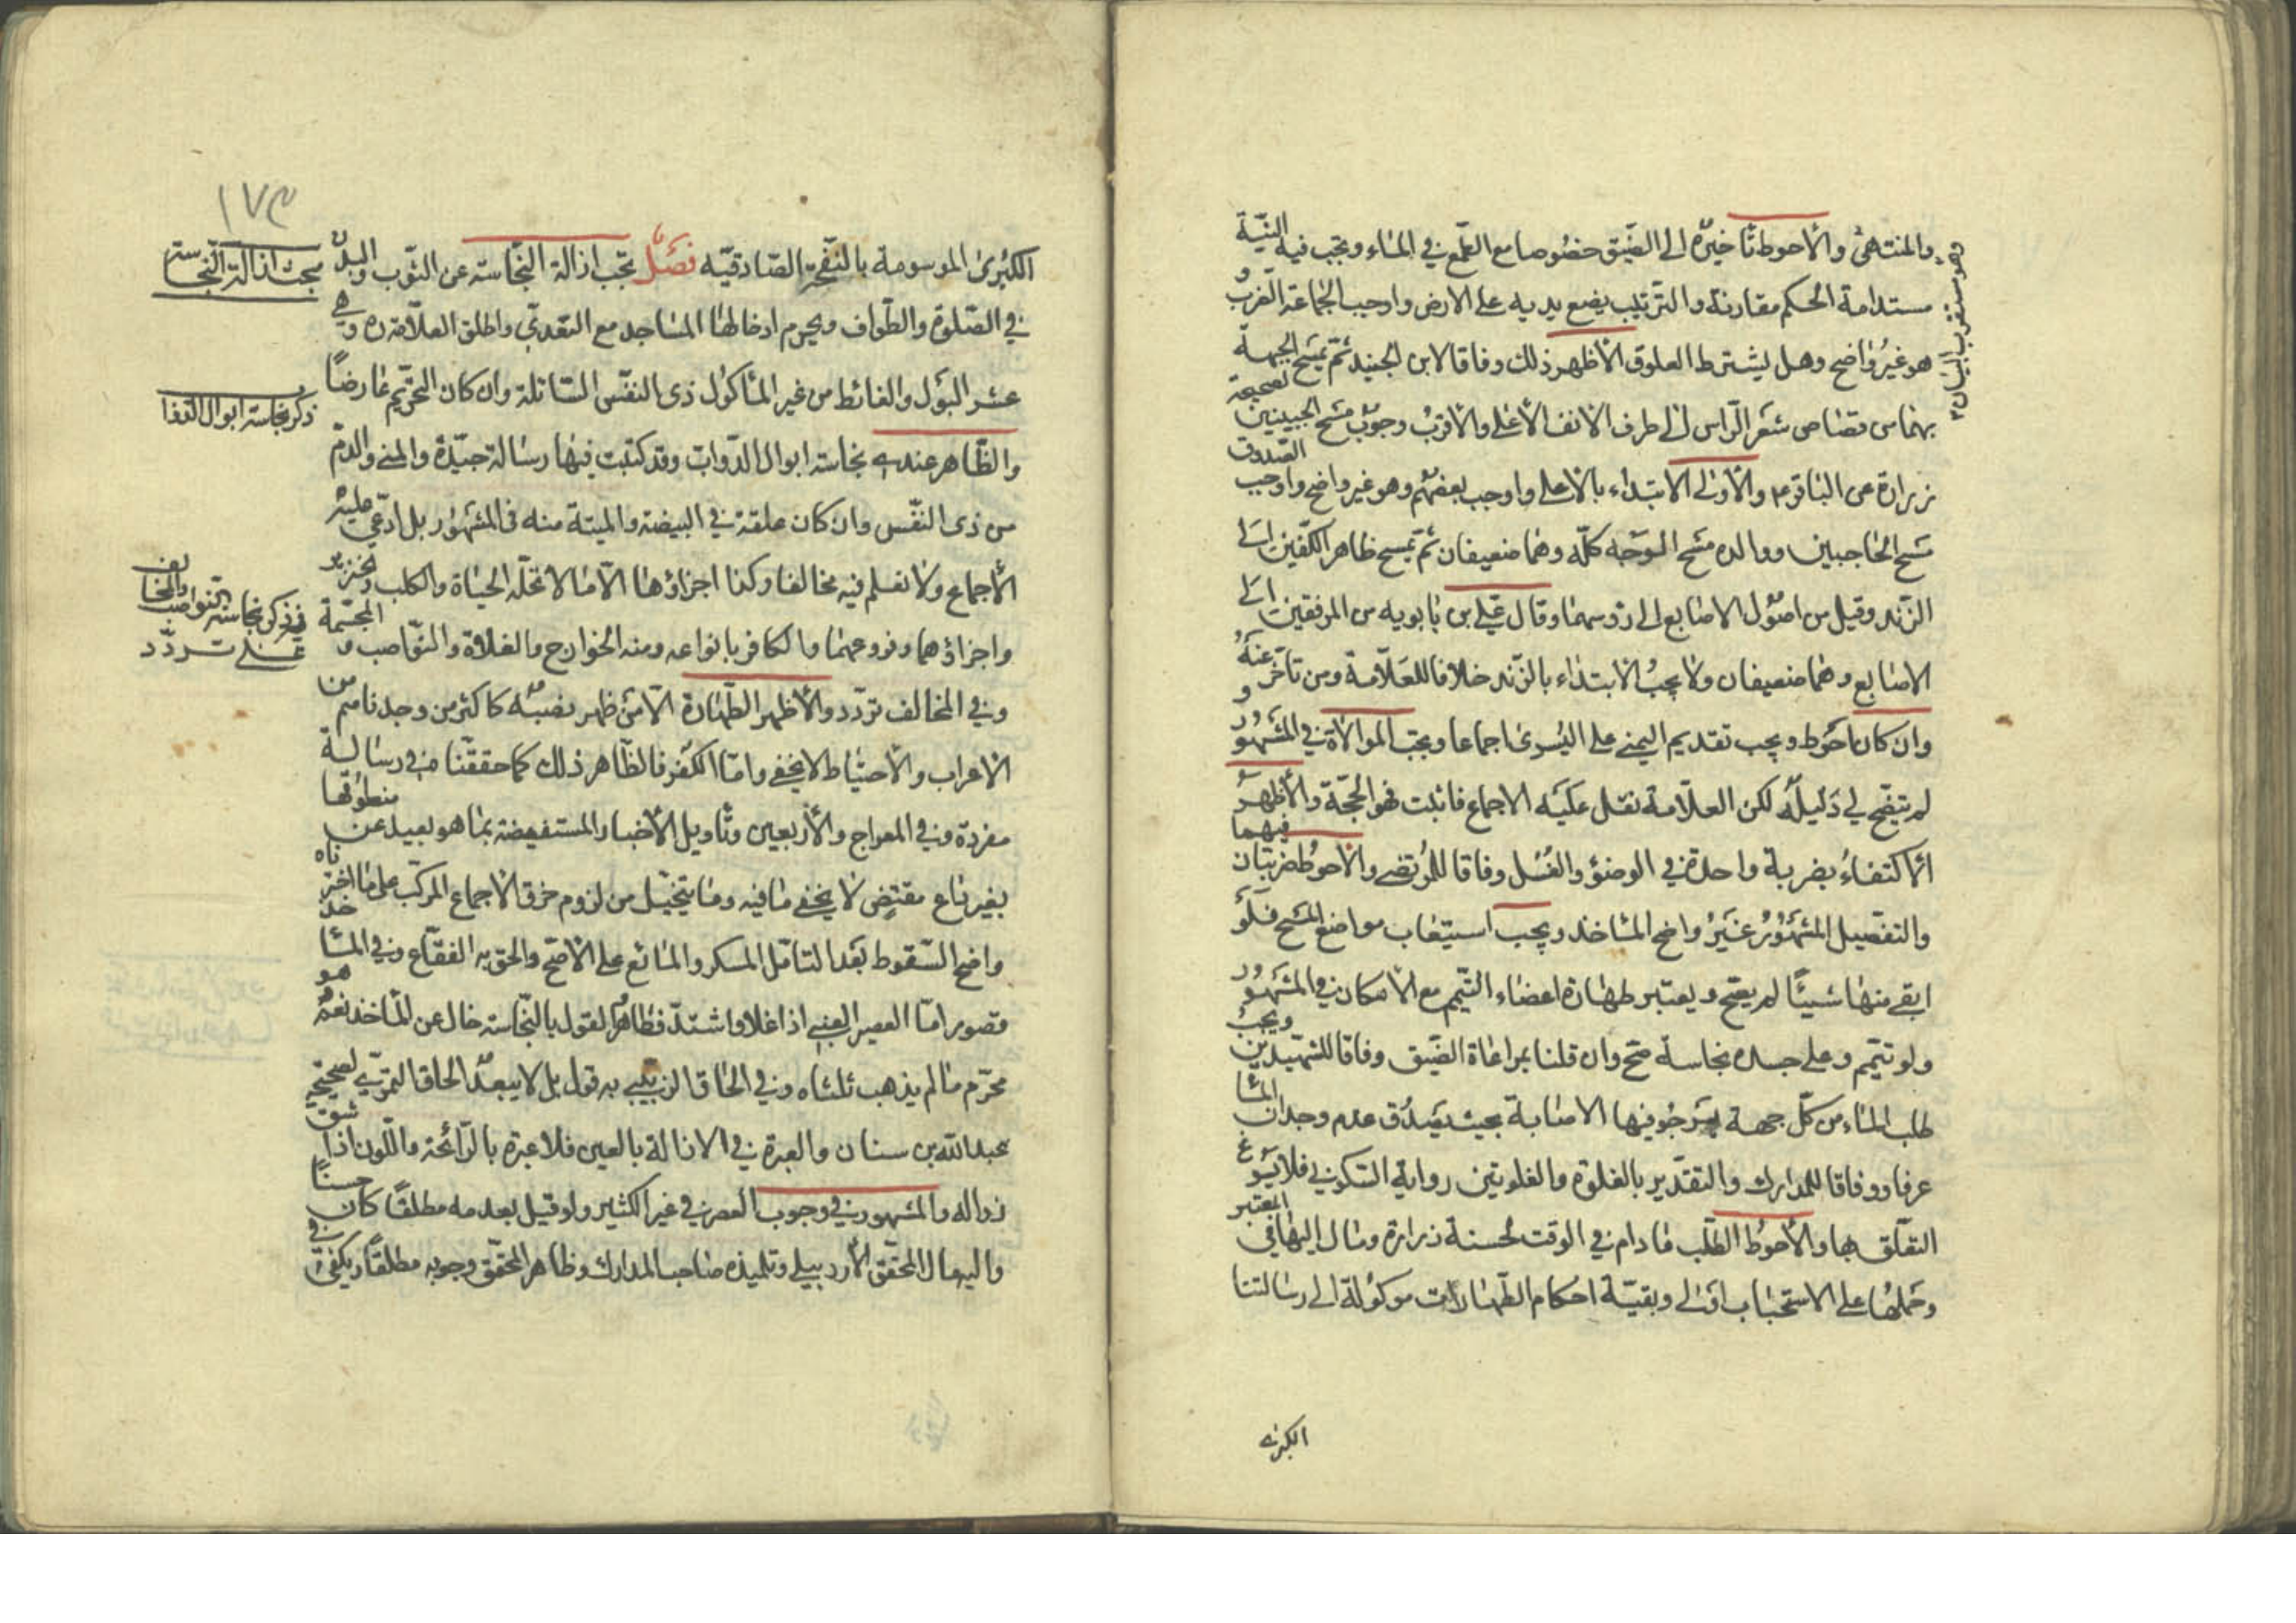 والمنتهى والأحوط تأخيره الى الضيق خصوصا مع الطمع في الماء ويجب فيه النية
مستدامة الحكم مقارنة والترتيب يضع يديه على الارض واوجب الجماعة الضرب و
هو غير واضح وهل يشترط العلوق الأظهر ذلك وفاقا لابن الجنيد ثم يمسح الجبهة
بهما من قصاص شعر الراس الى طرف الانف الأعلى والأقرب وجوب مسح الجبينين لصحيحة
زرارة عن الباقر ع والأولى الابتداء بالأعلى واوجب بعضهم وهو غير واضح واوجب الصدوق
مسح الحاجبين ووالده مسح الوجه كله وهما ضعيفان ثم يمسح ظاهر الكفين الى
الزند وقيل من اصول الاصابع الى رؤسهما وقال علي بن بابويه من المرفقين الى
الاصابع وهما ضعيفان ولا يجب الابتداء بالزند خلافا للعلامة ومن تأخر عنه
وان كان احوط ويجب تقديم اليمنى على اليسرى اجماعا ويجب الموالاة في المشهور و
لم يتضح لي دليله لكن العلامة نقل عليه الاجماع فان ثبت فهو الحجة والأظهر
الاكتفاء بضربة واحدة في الوضوء والغسل وفاقا للمرتضى والأحوط ضربتان فيهما
والتفصيل المشهور غير واضح المأخذ ويجب استيعاب مواضع المسح فلو
ابقى منها شيئا لم يصح ويعتبر طهارة اعضاء التيمم مع الامكان في المشهور
ولو تيمم وعلى جسده نجاسة صح وان قلنا بمراعاة الضيق وفاقا للشهيدين ويجب
طلب الماء من كل جهة يرجو فيها الاصابة بحيث يصدق عدم وجدان الماء
عرفا ووفاقا للمدارك والتقدير بالغلوة والغلوتين رواية السكوني فلا يسوغ
التعلق بها والأحوط الطلب مادام في الوقت لحسنة زرارة ومال اليها في المعتبر
وحملها على الاستحباب اولى وبقية احكام الطهارات موكولة الى رسالتنا
الكبرى
١٧٣
الكبرى الموسومة بالنفحة الصادقيه فصل تجب ازالة النجاسة عن الثوب والبدن
في الصلوة والطواف ويحرم ادخالها المساجد مع التعدي واطلق العلامة ره وهي
عشر البول والغائط من غير المأكول ذى النفس السائلة وان كان التحريم عارضا
والظاهر عندي نجاسة ابوال الدواب وقد كتبت فيها رسالة جيدة والمني والدم
من ذى النفس وان كان علقة في البيضة والميتة منه في المشهور بل ادعي عليه
الأجماع ولا نعلم فيه مخالفا وكذا اجزاؤها الا ما لا تحله الحياة والكلب والخنزير
واجزاؤهما وفروعهما والكافر بانواعه ومنه الخوارج والغلاة والنواصب و المجسمة
وفي المخالف تردد والأظهر الطهارة الا من ظهر نصبه كاكثر من وجدناهم من
الاعراب والأحتياط لا يخفى واما الكفر فالظاهر ذلك كما حققناه في رسالة
مفردة وفي المعراج والأربعين وتأويل الأخبار المستفيضة بما هو بعيد عن منطوقها
بغير داع مقتضى لا يخفى ما فيه وما يتخيل من لزوم خرق الاجماع المركب على ما اخترناه
واضح السقوط بعد التامل المسكر والمائع على الأصح والحق به الفقاع وفي المأخذ
قصور اما العصير العنبي اذا غلا واشتد فظاهر القول بالنجاسة خال عن المأخذ نعم هو
محرم ما لم يذهب ثلثاه وفي الحاق الزبيبي به قول بل لا يبعد الحاق التمري لصحيحة
عبدالله بن سنان والعبرة في الازالة بالعين فلا عبرة بالرائحة واللون اذا شق
زواله والمشهور في وجوب العصر في غير الكثير ولو قيل بعدمه مطلقا كان حسنا
واليه مال المحقق الأردبيلي وتلميذه صاحب المدارك وظاهر المحقق وجوبه مطلقا ويكفي في
مبحث ازالة النجاسة
ذكر نجاسة ابوال
ذكر نجاسة النواصب والمخالف
على تردد